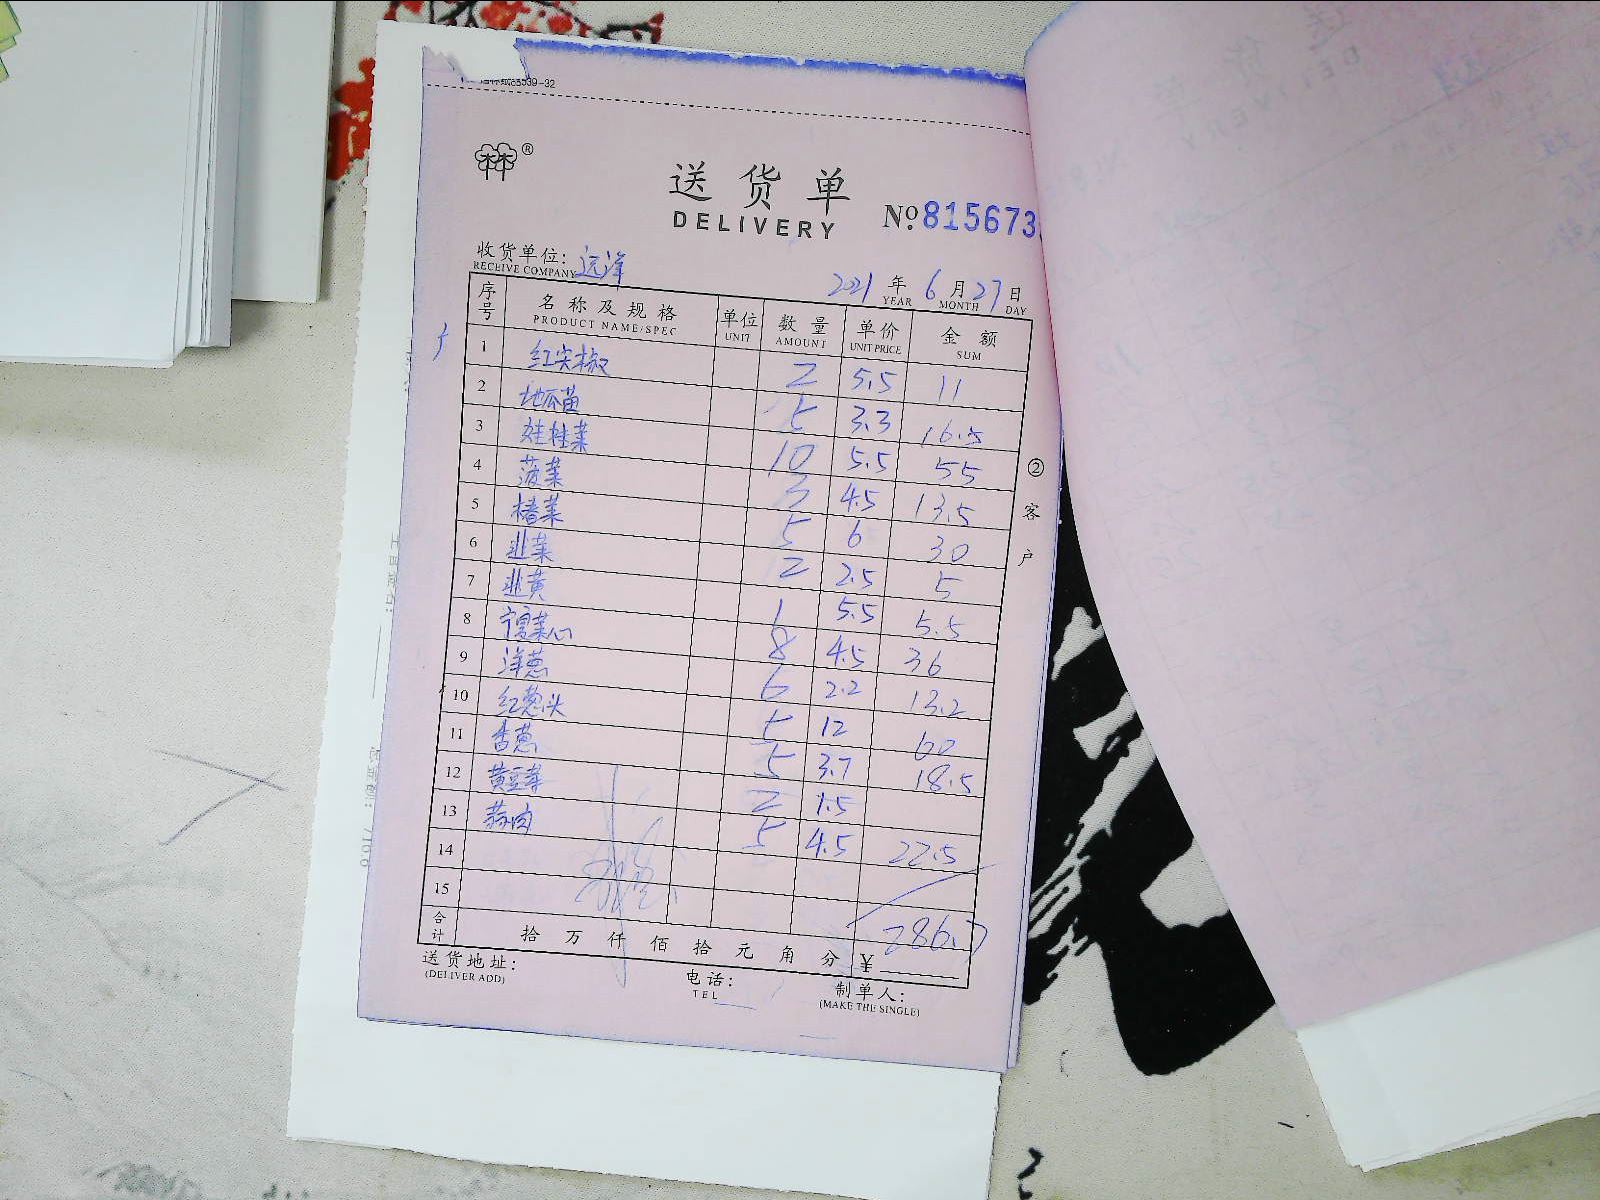 送货单
DELIVERY
№ 8156733
收货单位: 远洋
RECEIVE COMPANY
2021 年 6 月 27 日
YEAR MONTH DAY
序号 名称及规格 单位 数量 单价 金额
PRODUCT NAME/SPEC UNIT AMOUNT UNIT PRICE SUM
1 红尖椒 2 5.5 11
2 地瓜苗 5 3.3 16.5
3 娃娃菜 10 5.5 55
4 菠菜 3 4.5 13.5
5 椿菜 5 6 30
6 韭菜 2 2.5 5
7 韭黄 1 5.5 5.5
8 宁夏菜心 8 4.5 36
9 洋葱 6 2.2 13.2
10 红葱头 5 12 60
11 香葱 5 3.7 18.5
12 黄豆芽 2 1.5
13 蒜肉 5 4.5 22.5
14
15
合计 拾 万 仟 佰 拾 元 角 分 ¥ 286.7
送货地址: 电话: 制单人:
(DELIVER ADD) TEL (MAKE THE SINGLE)
② 客户